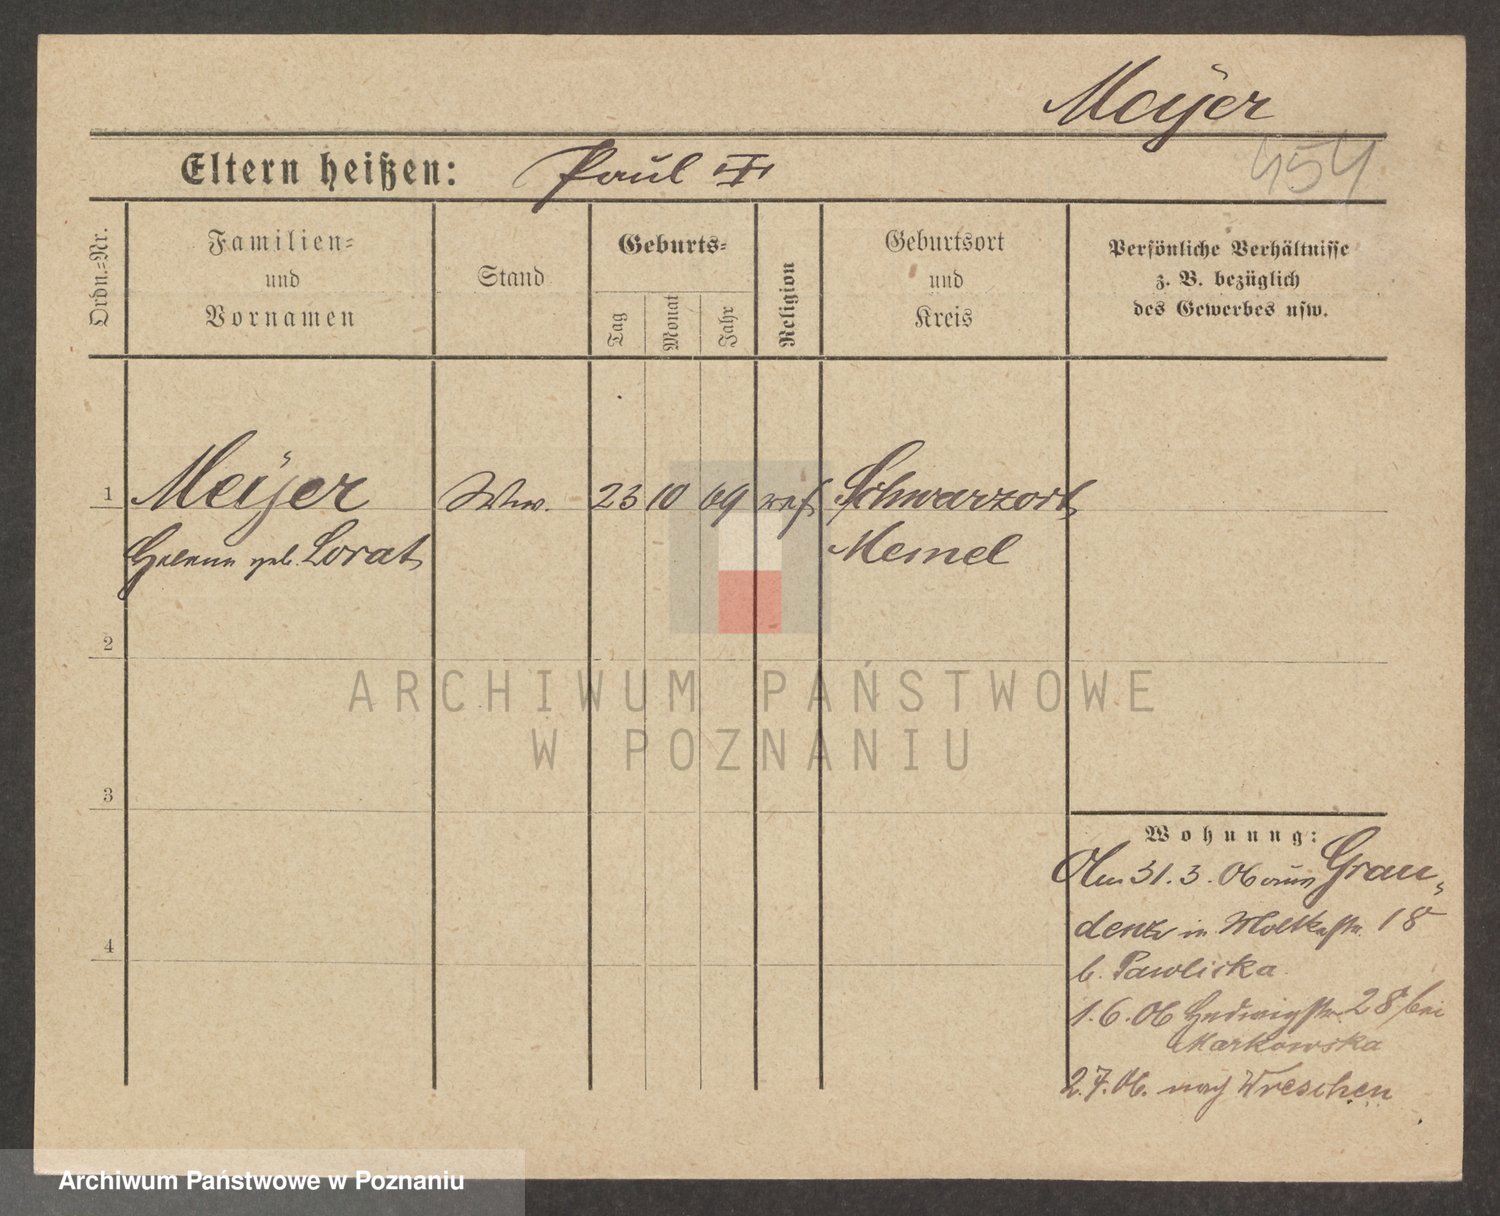 Meÿer
454
Eltern heißen: Paul I
Ordn.=Nr.
Familien=
und
Vornamen
Stand
Geburts=
Tag
Monat
Jahr
Religion
Geburtsort
und
Kreis
Persönliche Verhältnisse
z. B. bezüglich
des Gewerbes usw.
1 Meÿer Ww. 23 10 69 ref. Schwarzort,
Helene geb. Lorat Memel
2
3
4
Wohnung:
Am 31.3.06 aus Grau-
denz in Moltkestr. 18
b. Pawlicka
1.6.06 Hedwigstr. 28 bei
Markowska
2.7.06. nach Wreschen
ARCHIWUM PAŃSTWOWE
W POZNANIU
Archiwum Państwowe w Poznaniu